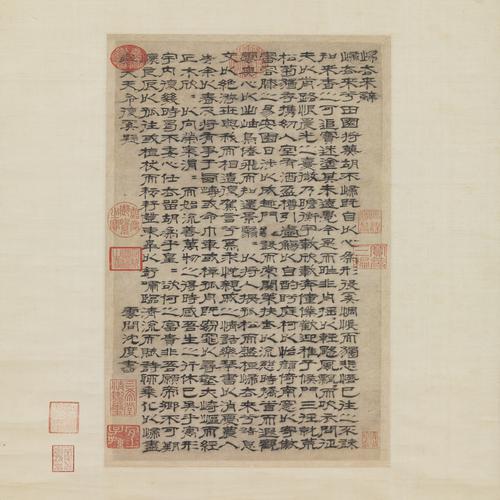 歸去來辭
歸去來兮田園將蕪胡不歸既自以心為形役奚惆悵而獨悲悟已往之不諫
知來者之可追實迷途其未遠覺今是而昨非舟搖〻以輕颺風飄〻而吹衣問征
夫以前路恨晨光之熹微乃瞻衡宇載欣載奔僮僕歡迎稚子候門三徑就荒
松菊猶存攜幼入室有酒盈樽引壺觴以自酌眄庭柯以怡顏倚南窗以寄傲
審容膝之易安園日涉以成趣門雖設而常關策扶老以流憩時矯首而遐觀
雲無心以出岫鳥倦飛而知還景翳〻以將入撫孤松而盤桓歸去來兮請息
交以絕游世與我而相遺復駕言兮焉求悅親戚之情話樂琴書以消憂農人
告余以春及將有事于西疇或命巾車或棹孤舟既窈窕以尋壑亦崎嶇而經
丘木欣〻以向榮泉涓〻而始流善萬物之得時感吾生之行休已矣乎寓形
宇內復幾時曷不委心任去留胡為乎遑〻欲何之富貴非吾願帝鄉不可期
懷良辰以孤往或植杖而耘耔登東皋以舒嘯臨清流而賦詩聊乘化以歸盡
樂夫天命復奚疑
雲間沈度書